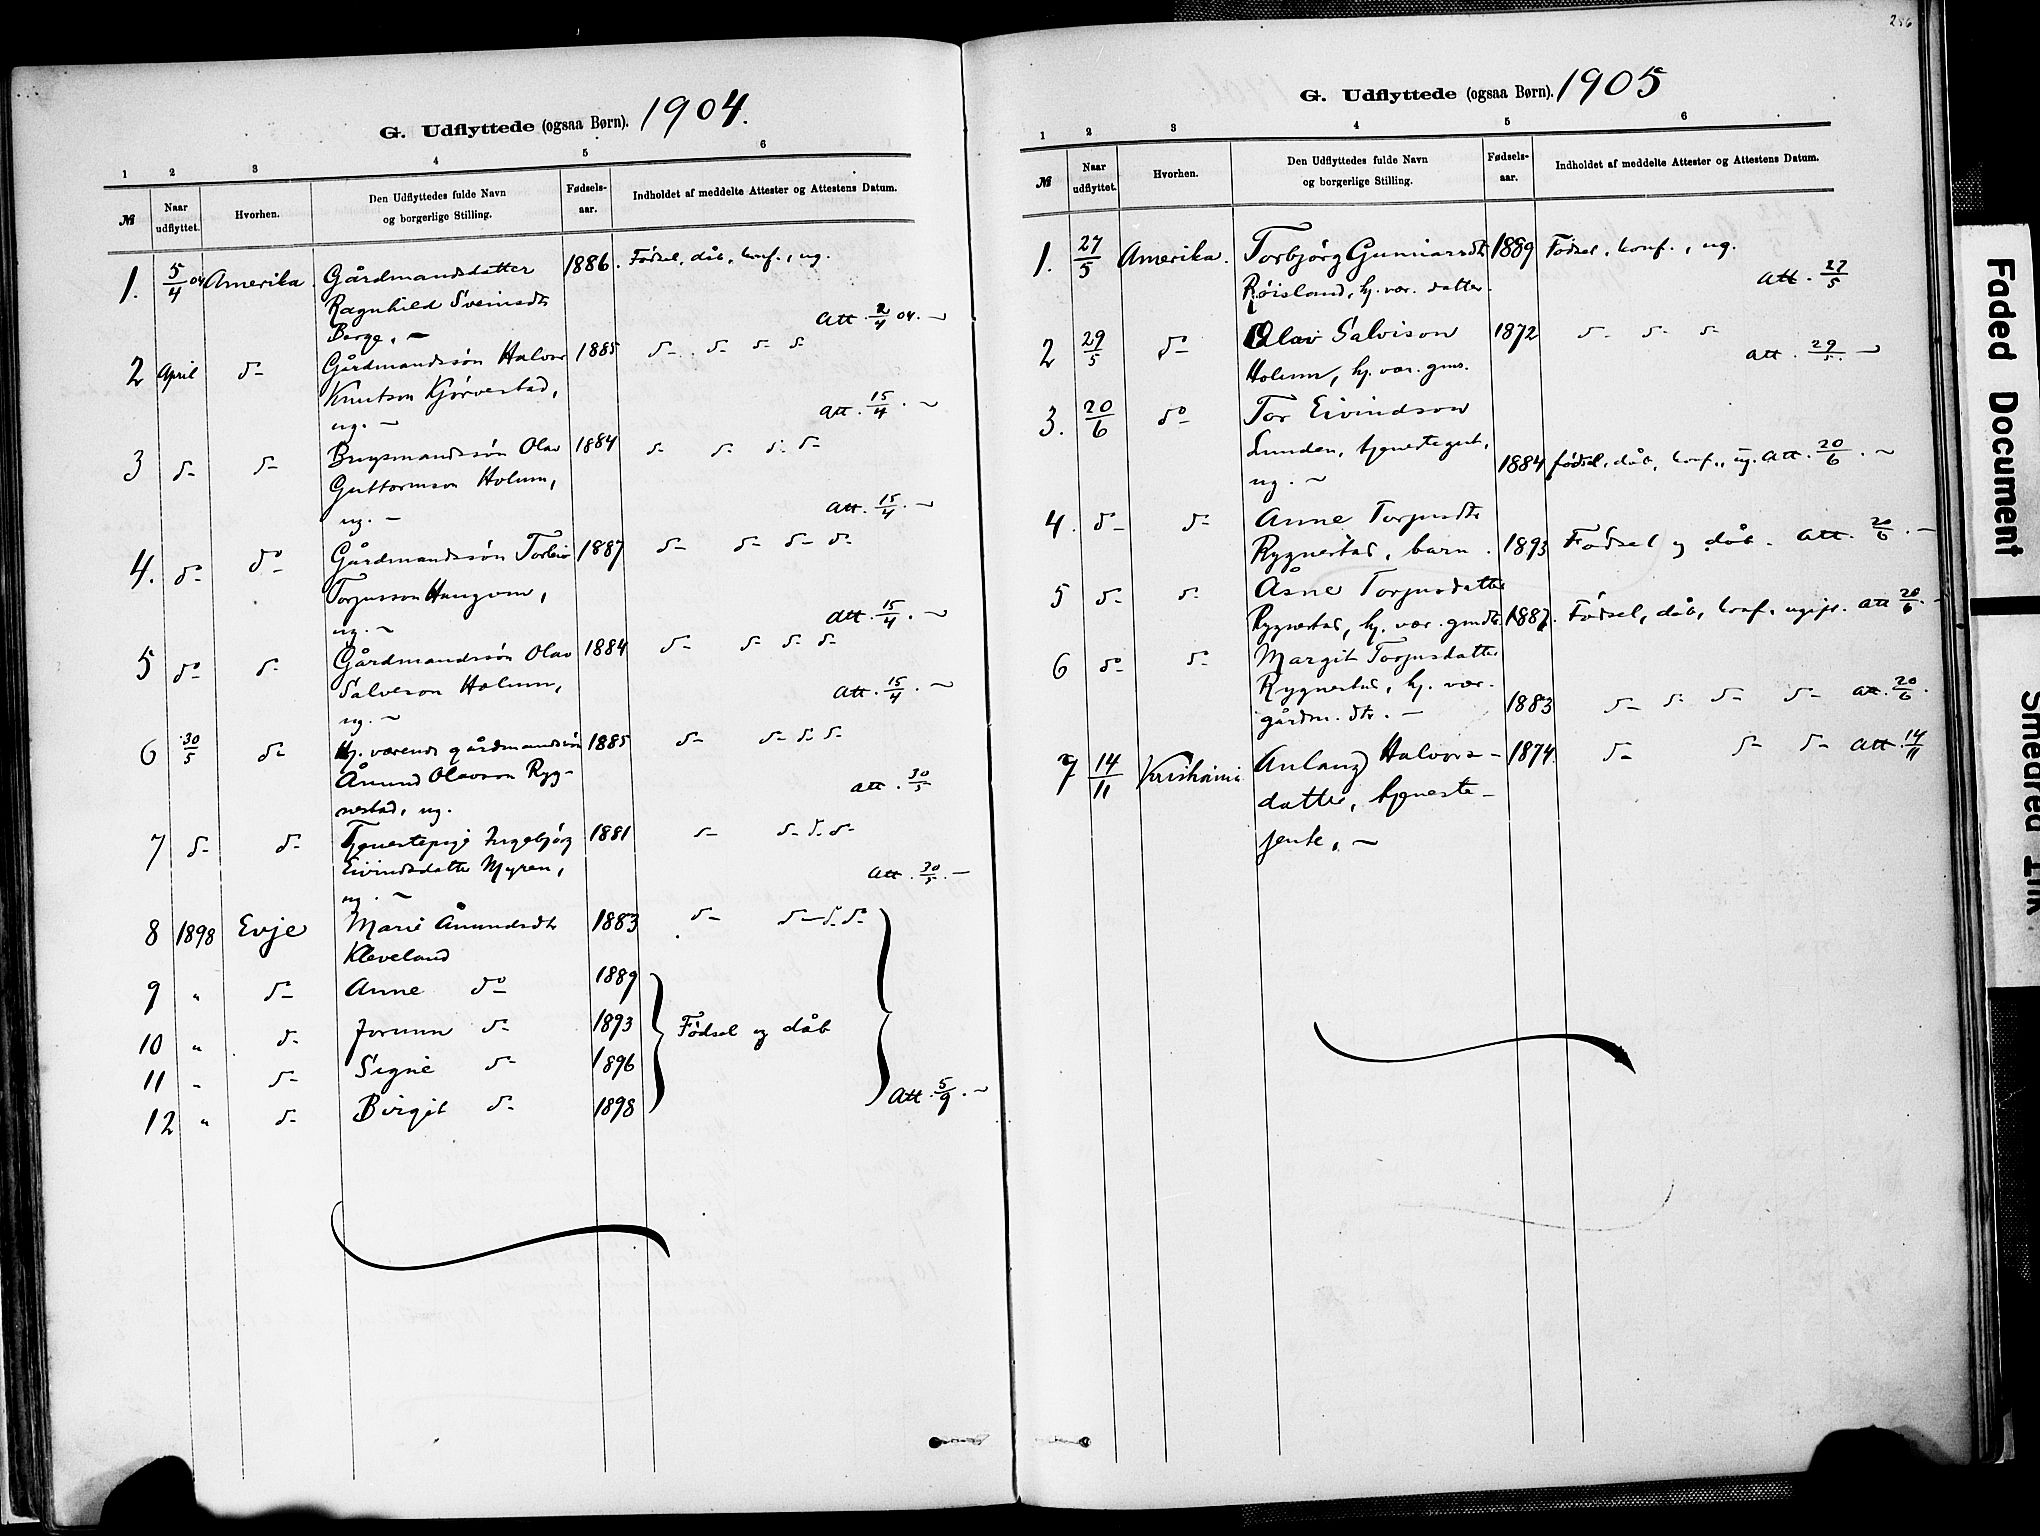 G. Udflyttede (ogsaa Børn). 1904.
1 2 3 4 5 6
№ Naar udflyttet. Hvorhen. Den Udflyttedes fulde Navn og borgerlige Stilling. Fødsels-aar. Indholdet af meddelte Attester og Attestens Datum.
1. 5/4 04 Amerika. Gårdmandsdatter 1886. Fødsel, dåb, konf., ug.
Ragnhild Sveinsdtr
Berge, – Att. 2/4 04. –
2 April do Gårdmandssøn Halvor 1885 do do do do
Knutson Kjørvestad,
ug. – Att. 15/4. –
3 do do Brugsmandssøn Olav 1884 do do do do
Guttormson Holum,
ug. – Att. 15/4. –
4. do do Gårdmandssøn Torleiv 1887 do do do do
Torjusson Haugom,
ug. – Att. 15/4. –
5 do do Gårdmandssøn Olav 1884 do do do do
Salveson Holum,
ug. – Att. 15/4. –
6 30/5 do Hj. værende gårdmandssøn 1885 do do do do
Åmund Olavson Ryg-
nestad, ug. Att. 30/5
7 do do Tjenestepige Ingebjørg 1881 do do do do
Eivindsdatter Myren,
ug. – Att. 30/5. –
8 1898 Evje Marie Åmundsdtr 1883 do do do do
Kleveland
9 " do Anne do 1889
10 " do Jorunn do 1893 Fødsel og dåb
11 " do Signe do 1896
12 " do Birgit do 1898 Att. 5/9. –
286
G. Udflyttede (ogsaa Børn). 1905
1 2 3 4 5 6
№ Naar udflyttet. Hvorhen. Den Udflyttedes fulde Navn og borgerlige Stilling. Fødsels-aar. Indholdet af meddelte Attester og Attestens Datum.
1. 27/5 Amerika. Torbjørg Gunnarsdtr 1889 Fødsel, konf., ug.
Røisland, hj. vær. datter. Att. 27/5
2 29/5 do Olav Salvison 1872 do do do
Holum, hj. vær. gms. Att. 29/5. –
3. 20/6 do Tor Eivindson
Lunden, tjenestegut,
ug. – 1884 fødsel, dåb, konf., ug. Att. 20/6. –
4. do do Anne Torjusdtr
Rygnestad, barn. 1893 Fødsel og dåb. Att. 20/6. –
5 do do Åsne Torjusdatter
Rygnestad, hj. vær. gmdtr. 1887. Fødsel, dåb, konf. ugift. Att 20/6. –
6 do do Margit Torjusdatter
Rygnestad, hj. vær.
gårdm. dtr. – 1883 do do do do Att. 20/6.
7 14/11 Kristiania Anlaug Halvors- 1874. do do do Att. 14/11
datter, tjeneste-
jente, –
Faded Document
Smeared Ink